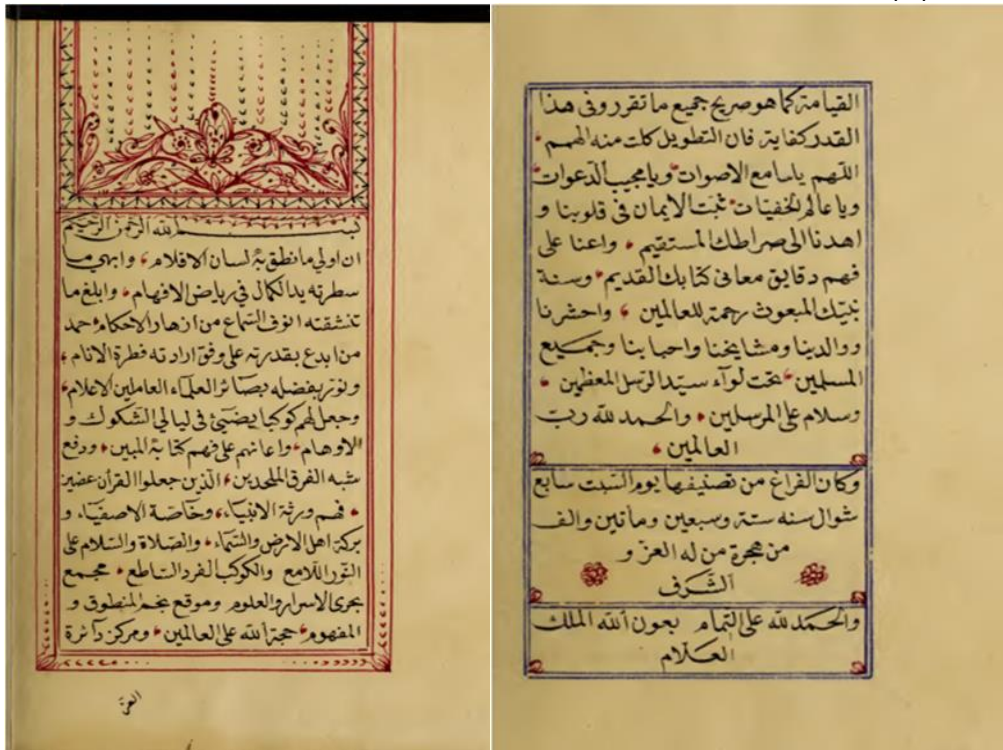 بسم الله الرحمن الرحيم
ان اولي ما نطق به لسان الاقلام، وابهى ما
سطرته يد الكمال في رياض الافهام، وابلغ ما
تنشقته انوف السماع من ازهار الاحكام، حمد
من ابدع بقدرته على وفق ارادته فطرة الانام،
ونور بفضله بصائر العلماء العاملين الاعلام،
وجعل لهم كوكبا يضيئ في ليالي الشكوك و
الاوهام، واعانهم على فهم كتابه المبين، ودفع
شبه الفرق الملحدين، الذين جعلوا القرأن عضين
، فهم ورثة الانبياء، وخاصة الاصفياء، و
بركة اهل الارض والسماء، والصلاة والسلام على
النور اللامع والكوكب الفرد الساطع، مجمع
بحرى الاسرار والعلوم وموقع نجم المنطوق و
المفهوم، حجة الله على العالمين، ومركز دآئرة
العز
القيامة كما هو صريح جميع ما تقرر وفى هذا
القدر كفاية فان التطويل كلت منه الهمم،
اللهم ياسامع الاصوات، ويامجيب الدعوات،
وياعالم الخفيات، ثبت الايمان فى قلوبنا و
اهدنا الى صراطك المستقيم، واعنا على
فهم دقايق معانى كتابك القديم، وسنة
نبيك المبعوث رحمة للعالمين، واحشرنا
ووالدينا ومشايخنا واحبابنا وجميع
المسلمين، تحت لوآء سيد الرسل المعظمين،
وسلام على المرسلين، والحمد لله رب
العالمين،
وكان الفراغ من تصنيفها يوم السبت سابع
شوال سنه ستة وسبعين وماتين والف
من هجرة من له العز و
الشرف
والحمد لله على التمام بعون الله الملك
العلام